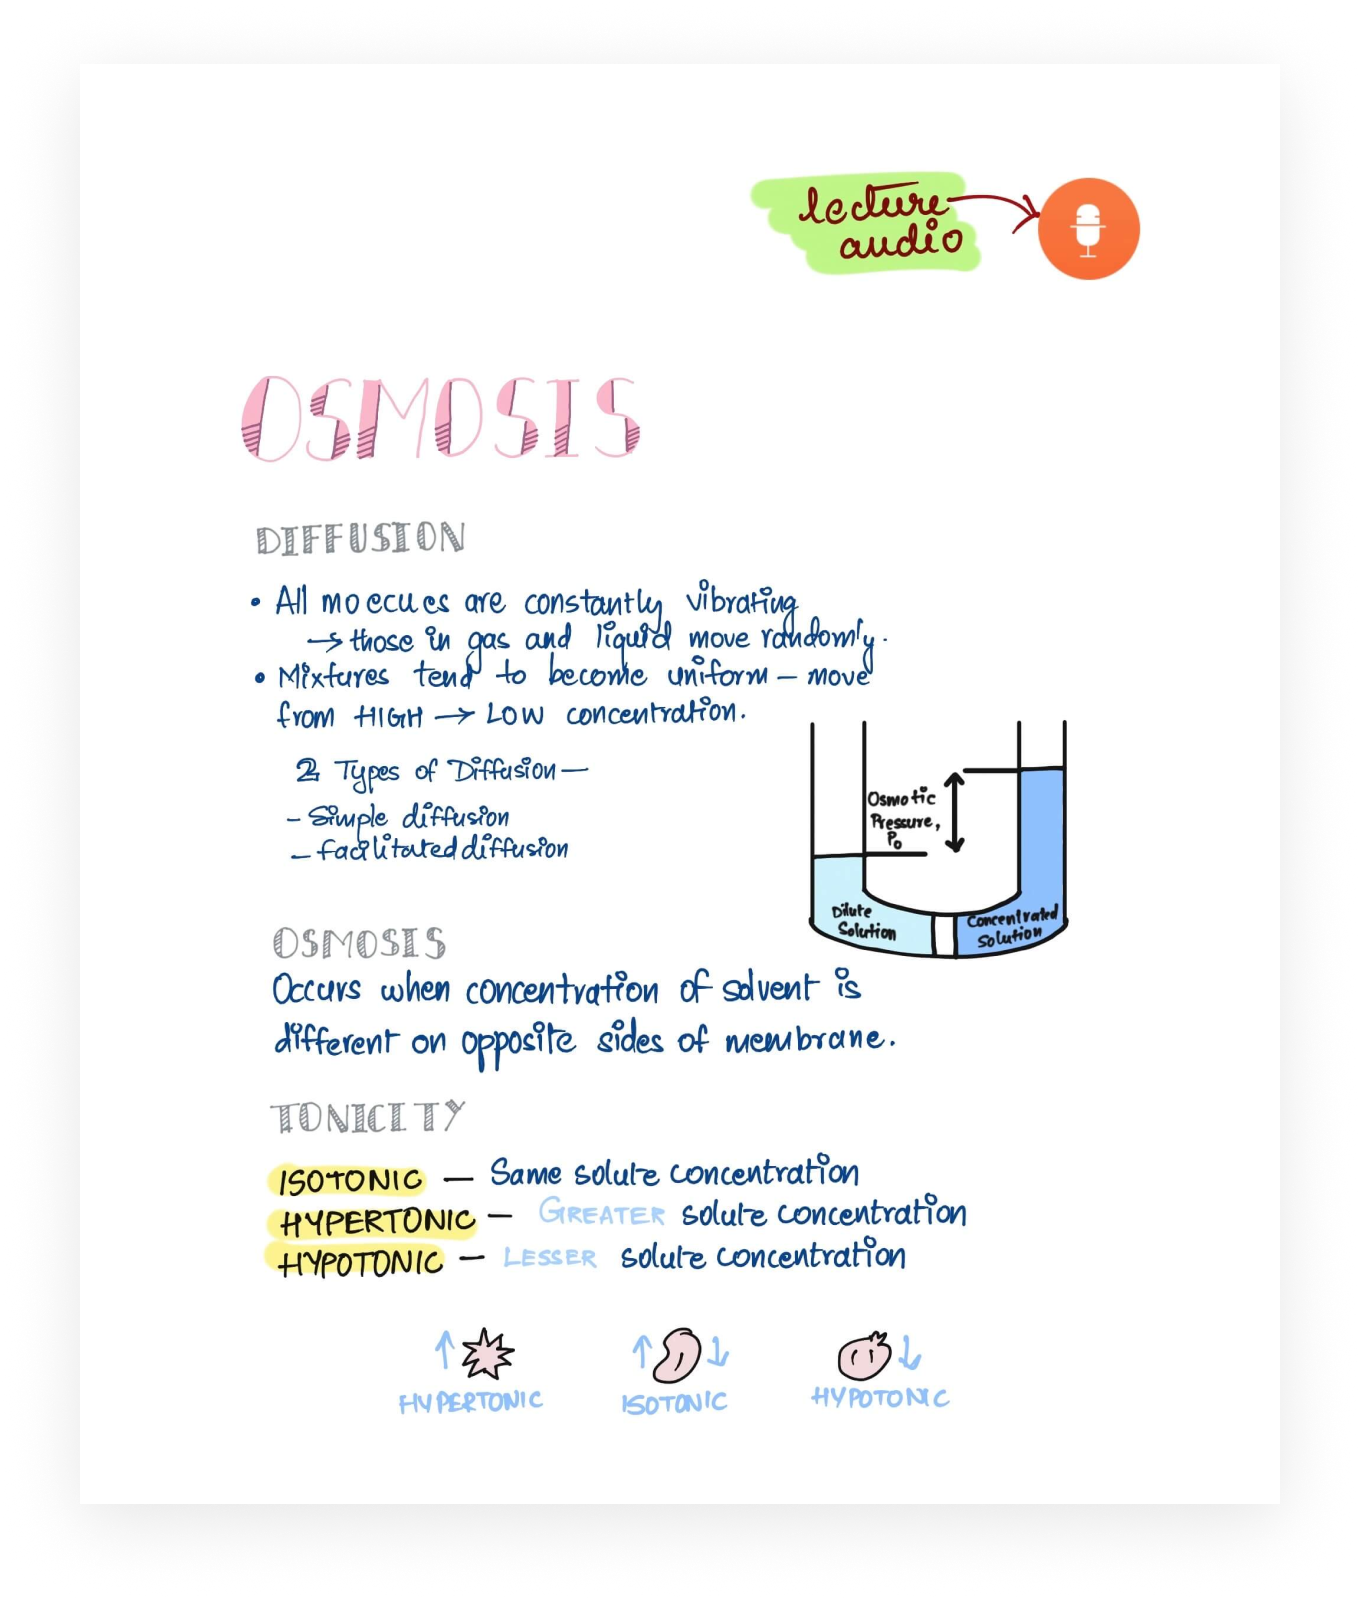 lecture
audio
OSMOSIS
DIFFUSION
• All moecues are constantly vibrating
→ those in gas and liquid move randomly.
• Mixtures tend to become uniform – move
from HIGH → LOW concentration.
2 Types of Diffusion –
- Simple diffusion
- facilitated diffusion
Osmotic
Pressure,
P₀
Dilute
Solution
Concentrated
Solution
OSMOSIS
Occurs when concentration of solvent is
different on opposite sides of membrane.
TONICITY
ISOTONIC – Same solute concentration
HYPERTONIC – GREATER solute concentration
HYPOTONIC – LESSER solute concentration
↑ ↑ ↓ ↓
HYPERTONIC ISOTONIC HYPOTONIC